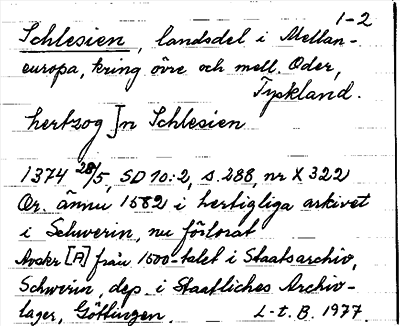 1-2
Schlesien, landsdel i Mellan-
europa, kring övre och mell. Oder,
Tyskland.
hertzog]n Schlesien
1374 28/5, SD 10:2, s. 288, nr X 322
Or. ännu 1582 i hertigliga arkivet
i Schwerin, nu förlorat
Avskr [A] från 1500-talet i Staatsarchiv,
Schwerin, dep. i Staatliches Archiv-
lager, Göttingen. L-t. B. 1977.